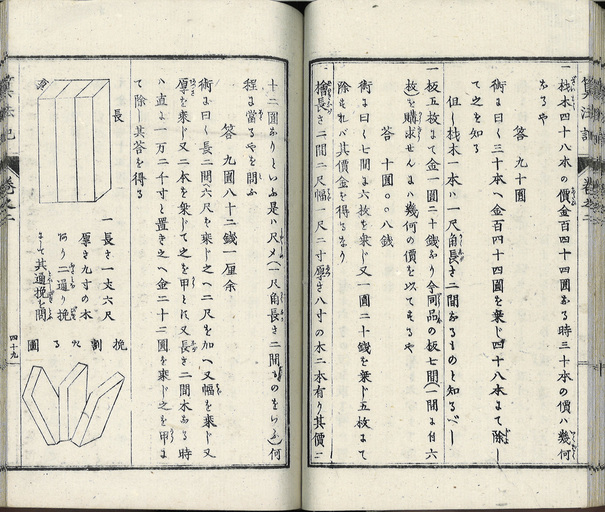 一 材木四十八本の價金百四十四圓なる時三十本の價ハ幾何
なるや
答 九十圓
術に曰く三十本へ金百四十四圓を乗じ四十八本にて除し
て之を知る
但し材木一本ハ一尺角長さ二間なるものと知るべし
一 板五枚にて金一圓二十銭なり今同品の板七間(一間に付六
枚)を購求せんにハ幾何の價を以てするや
答 十圓〇〇八銭
術に曰く七間に六枚を乗じ又一圓二十銭を乗じ五枚にて
除すれバ其價金を得るなり
一 檜長さ二間二尺幅一尺二寸厚さ八寸の木二本有り其價二
十二圓なりといふ是ハ尺〆(一尺角長さ二間ものをいふ)何
程に當るやを問ふ
答 九圓八十二銭一厘余
術に曰く長二間へ六尺を乗じ之へ二尺を加へ又幅を乗じ又
厚を乗じ又二本を乗じて之を甲とし又長さ二間木なる時
ハ直に一万二千寸と置き之へ金二十二圓を乗じ之を甲に
て除し其答を得る
長
一 長さ一丈六尺
厚さ九寸の木
有り二通り挽
にして其通挽を問
挽割たる圖
算法記 巻之二
四十九